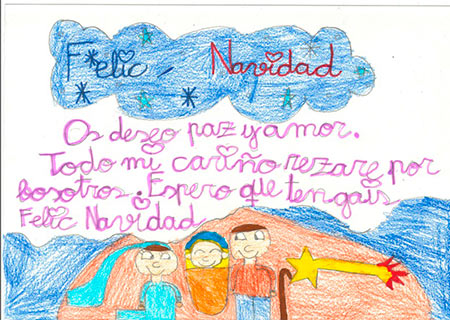 Felic, Navidad
Os deseo paz y amor.
Todo mi cariño rezare por
bosotros. Espero que tengais
Felic Navidad